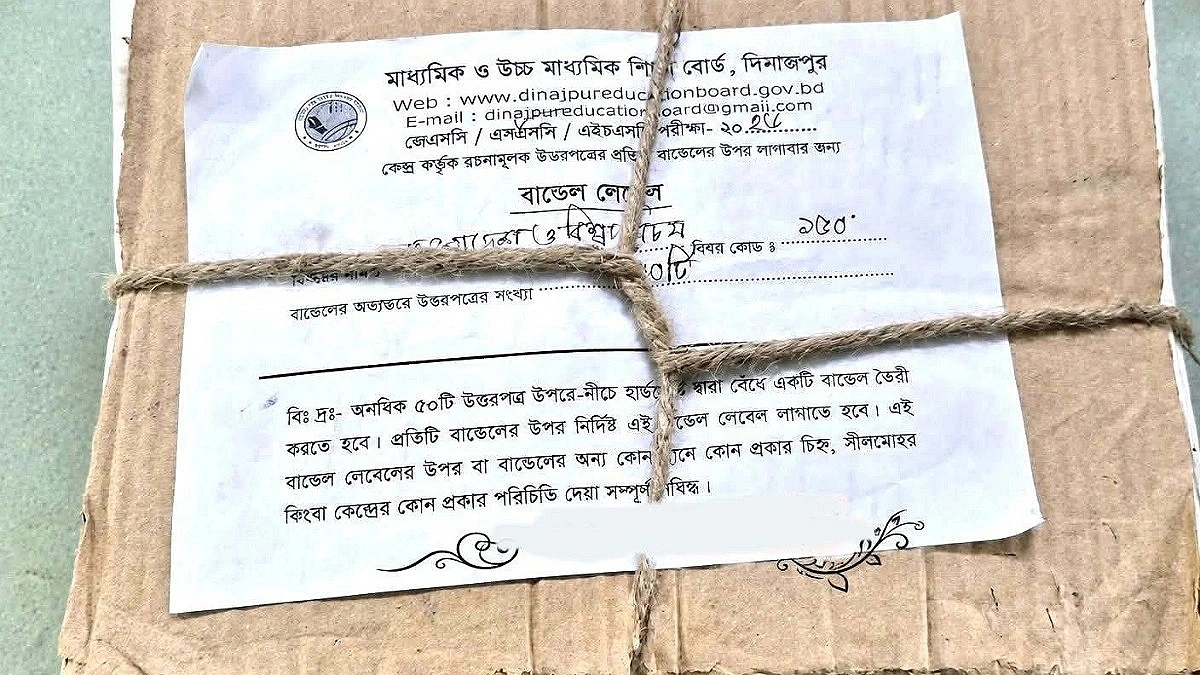 মাধ্যমিক ও উচ্চ মাধ্যমিক বোর্ড, দিনাজপুর
Web : www.dinajpureducationboard.gov.bd
E-mail : dinajpureducationboard@gmail.com
জেএসসি / এসএসসি / এইচএসসি পরীক্ষা- ২০
কেন্দ্র কর্তৃক রচনামূলক উত্তরপত্রের প্রতি বান্ডেলের উপর লাগাবার জন্য
বান্ডেল লেবেল
ও বিশ্ব বিষয় কোড ঃ ১৫০
বান্ডেলের অভ্যন্তরে উত্তরপত্রের সংখ্যা
বিঃ দ্রঃ- অনধিক ৫০টি উত্তরপত্র উপরে-নীচে দ্বারা বেঁধে একটি বান্ডেল তৈরী
করতে হবে। প্রতিটি বান্ডেলের উপর নির্দিষ্ট এই বান্ডেল লেবেল লাগাতে হবে। এই
বান্ডেল লেবেলের উপর বা বান্ডেলের অন্য কোন কোন প্রকার চিহ্ন, সীলমোহর
কিংবা কেন্দ্রের কোন প্রকার পরিচিতি দেয়া সম্পূর্ণ নিষিদ্ধ।